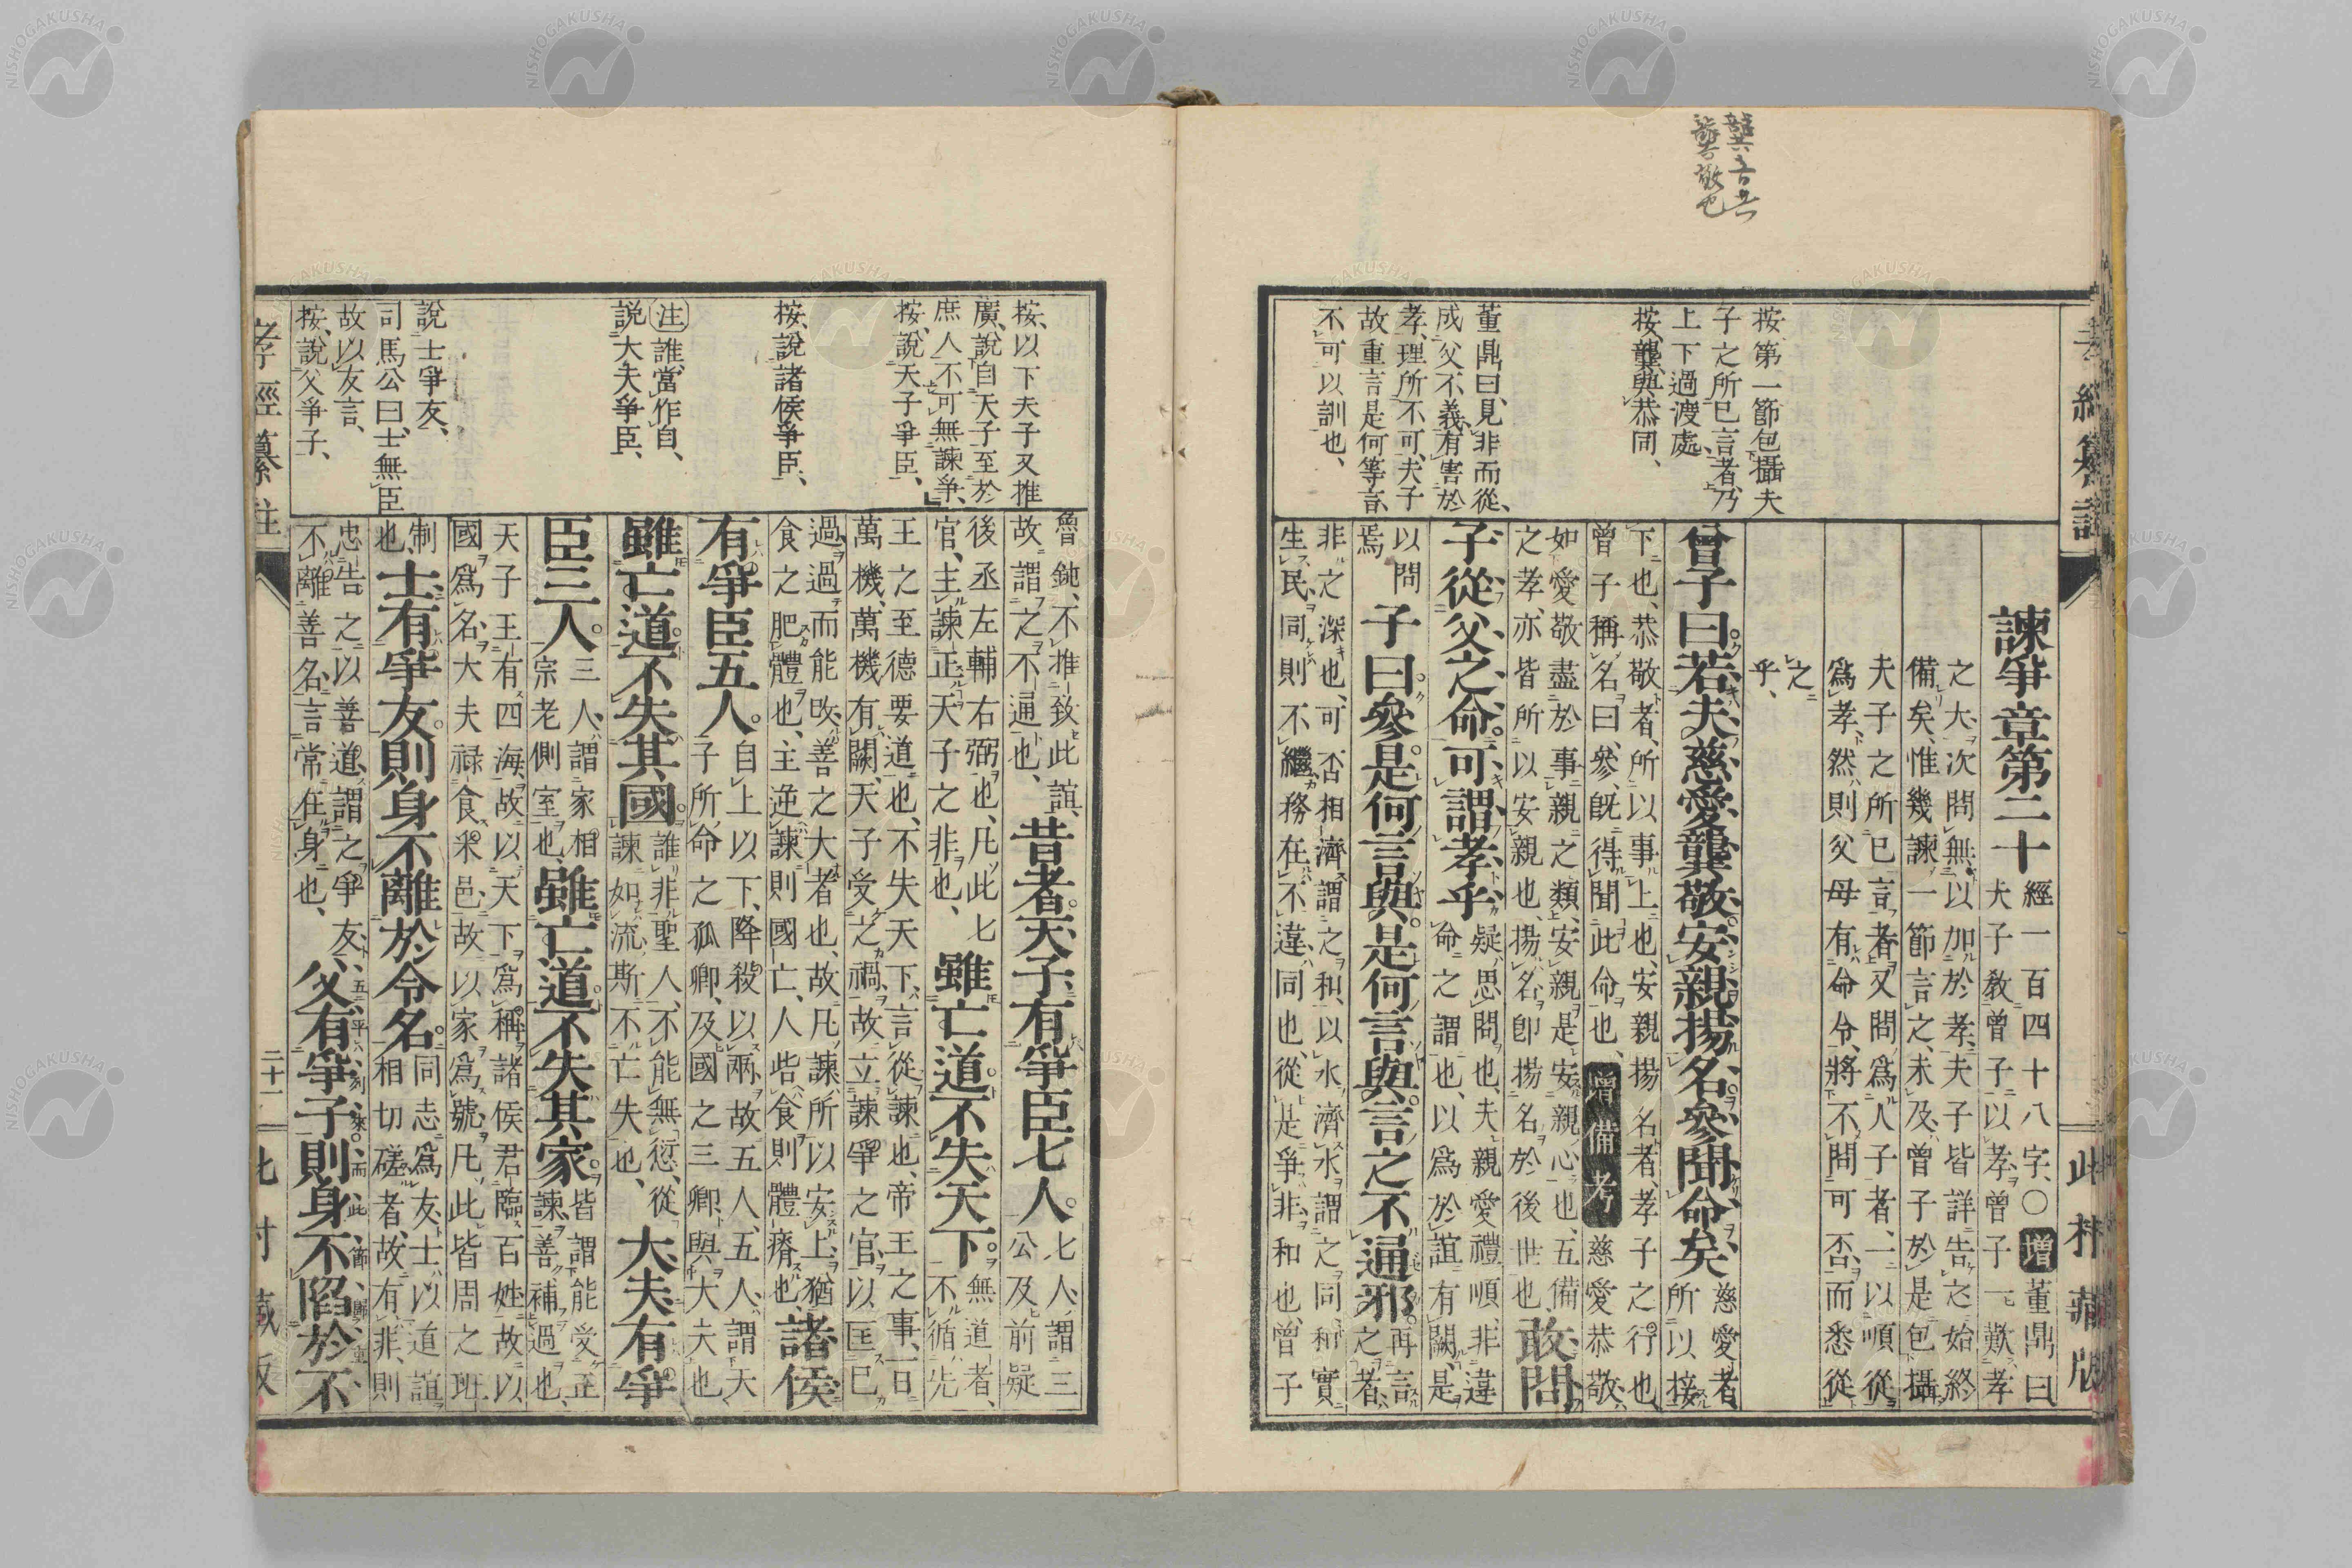 龔音共
龔敬也
孝經纂註
此村藏版
按、第一節包攝夫
子之所已言者、乃
上下過渡處、
按、龔與恭同、
董鼎曰、見非而從、
成父不義、有害於
孝、理所不可、夫子
故重言是何等言、
不可以訓也、
諫爭章第二十
經一百四十八字、〇增董鼎曰
夫子敎曾子以孝、曾子一歎孝
之大、次問無以加於孝、夫子皆詳告之、始終
備矣、惟幾諫一節言之未及、曾子於是包攝
夫子之所已言者、又問爲人子者、一以順從
爲孝、然則父母有命令、將不問可否、而悉從
之
乎、
曾子曰。若夫慈愛龔敬。安親揚名。參聞命矣
慈愛者、
所以接
下也、恭敬者、所以事上也、安親揚名者、孝子之行也、
曾子稱名曰、參、旣得聞此命也、增備考慈愛恭敬、
如愛敬盡於事親之類、安親是安親心也、五備
之孝、亦皆所以安親也、揚名、卽揚名於後世也、
敢問
子從父之命。可謂孝乎、
疑思問也、夫親愛禮順、非違
命之謂也、以爲於誼有闕、是
以問
焉
子曰。參。是何言與。是何言與。言之不通邪。
再言
之者、
非之深也、可否相濟謂之和、以水濟水謂之同、和實
生民、同則不繼、務在不違、同也、從是爭非、和也、曾子
按、以下夫子又推
廣、說自天子至於
庶人不可無諫爭、
按、說天子爭臣、
按、說諸侯爭臣、
注誰、當作自、
說大夫爭臣、
說士爭友、
司馬公曰、士無臣
故以友言、
按、說父爭子、
魯鈍、不推致此誼、
故謂之不通也、
昔者天子有爭臣七人。
七人、謂三
公及前疑
後丞左輔右弼也、凡此七
官、主諫正天子之非也、
雖亡道不失天下。
無道者、
不循先
王之至德要道也、不失天下、言從諫也、帝王之事、一日
萬機、萬機有闕、天子受之禍、故立諫爭之官、以匡己
過、過而能改、善之大者也、故凡諫、所以安上、猶
食之肥體也、主逆諫則國亡、人呰食則體瘠也、
諸侯
有爭臣五人。
自上以下、降殺以兩、故五人、五人、謂天
子所命之孤卿、及國之三卿、與大夫也、
雖亡道。不失其國。
誰非聖人、不能無愆、從
諫如流、斯不亡失也、
大夫有爭
臣三人。
三人、謂家相
宗老側室也、
雖亡道。不失其家。
皆謂能受正
諫、善補過也、
天子王有四海、故以天下爲稱、諸侯君臨百姓、故以
國爲名、大夫祿食采邑、故以家爲號、凡此皆周之班
制
也、
士有爭友。則身不離於令名。
同志爲友、士以道誼
相切磋者、故有非、則
忠告之以善道、謂之爭友、
不離善名、言常在身也、
父有爭子。則身不陷於不
孝經纂註
二十一
此村藏版